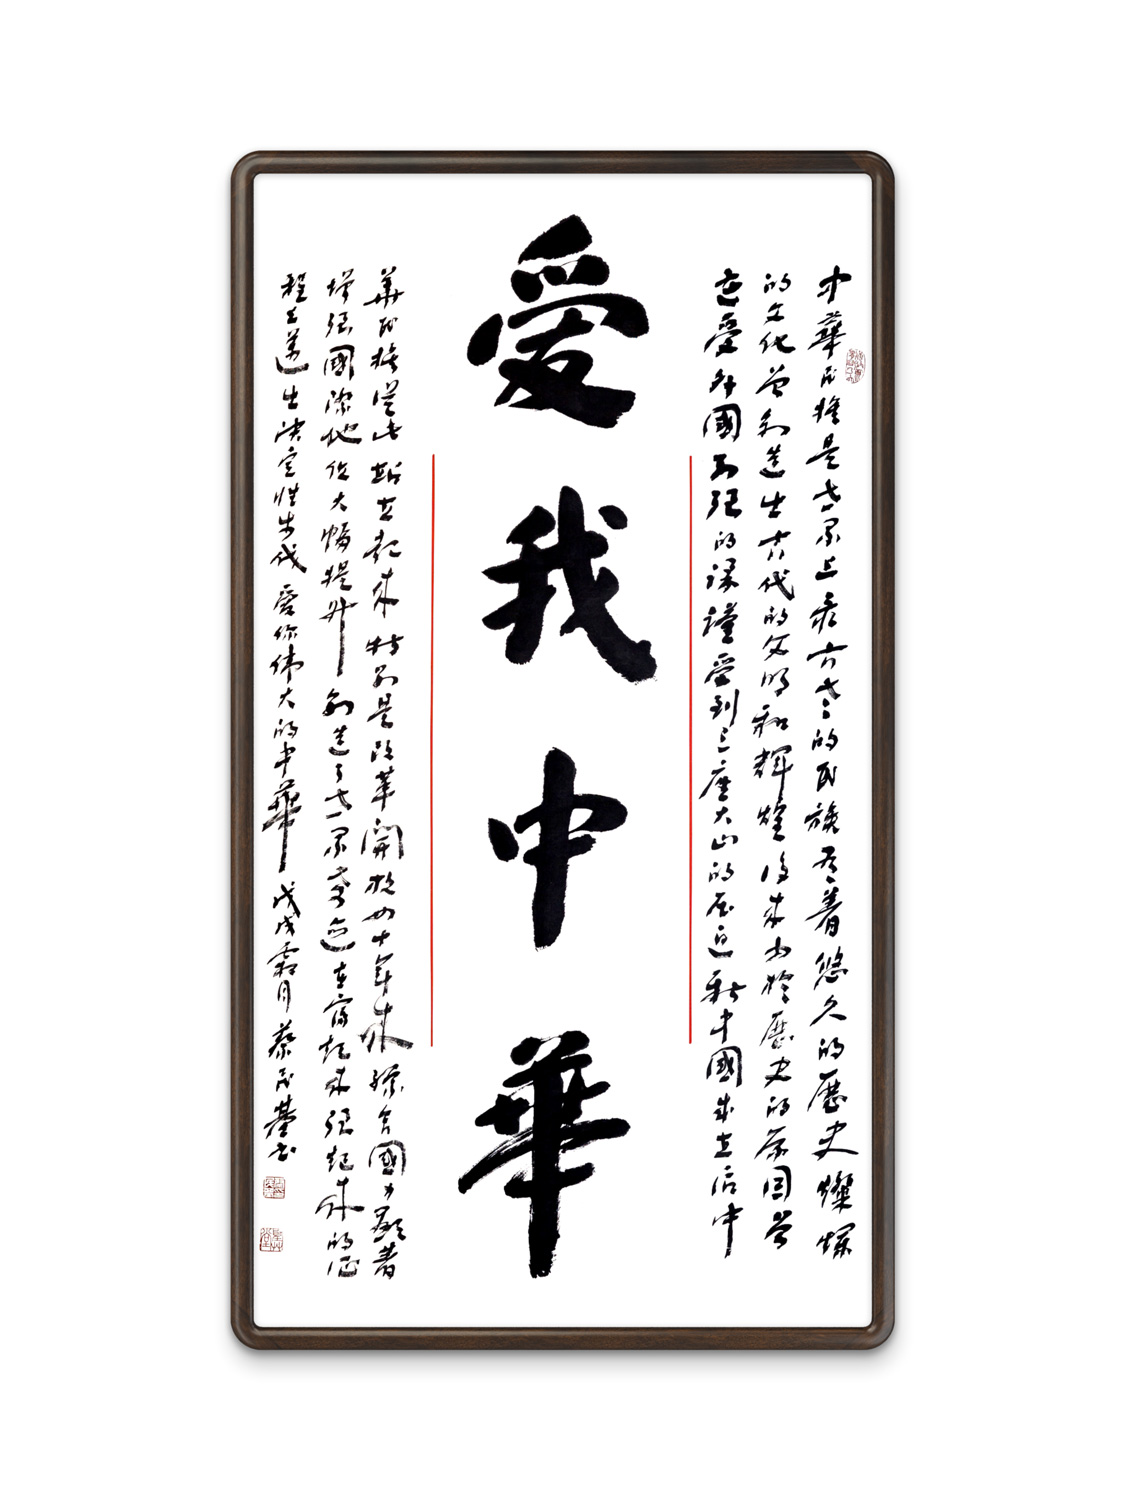 中華民族是世界上最古老的民族有着悠久的歷史燦爛
的文化曾創造出古代的文明和輝煌後來由於歷史的原因曾
遭受外國列强的蹂躪受到三座大山的压迫新中國成立后中
愛我中華
華民族從此站立起来特别是改革開放四十年来綜合國力顯著
增强國際地位大幅提升創造了世界奇迹在富起来强起来的征
程上邁出決定性步伐愛你偉大的中華戊戌霜月蔡